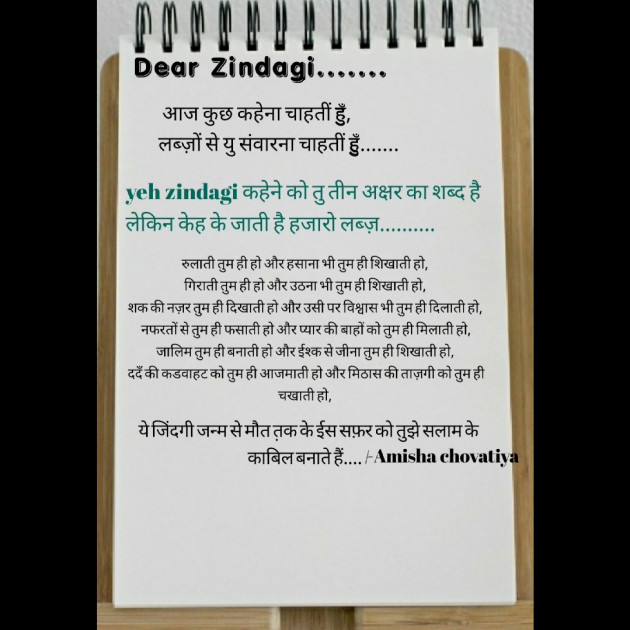 Dear Zindagi.......
आज कुछ कहेना चाहतीं हुँ,
लब्ज़ों से यु संवारना चाहतीं हुँ.......
yeh zindagi कहेने को तु तीन अक्षर का शब्द है
लेकिन केह के जाती है हजारो लब्ज़..........
रुलाती तुम ही हो और हसाना भी तुम ही शिखाती हो,
गिराती तुम ही हो और उठना भी तुम ही शिखाती हो,
शक की नज़र तुम ही दिखाती हो और उसी पर विश्वास भी तुम ही दिलाती हो,
नफरतों से तुम ही फसाती हो और प्यार की बाहों को तुम ही मिलाती हो,
जालिम तुम ही बनाती हो और ईश्क से जीना तुम ही शिखाती हो,
ददँ की कडवाहट को तुम ही आजमाती हो और मिठास की ताज़गी को तुम ही
चखाती हो,
ये जिंदगी जन्म से मौत त़क के ईस सफ़र को तुझे सलाम के
काबिल बनाते हैं.... /-Amisha chovatiya